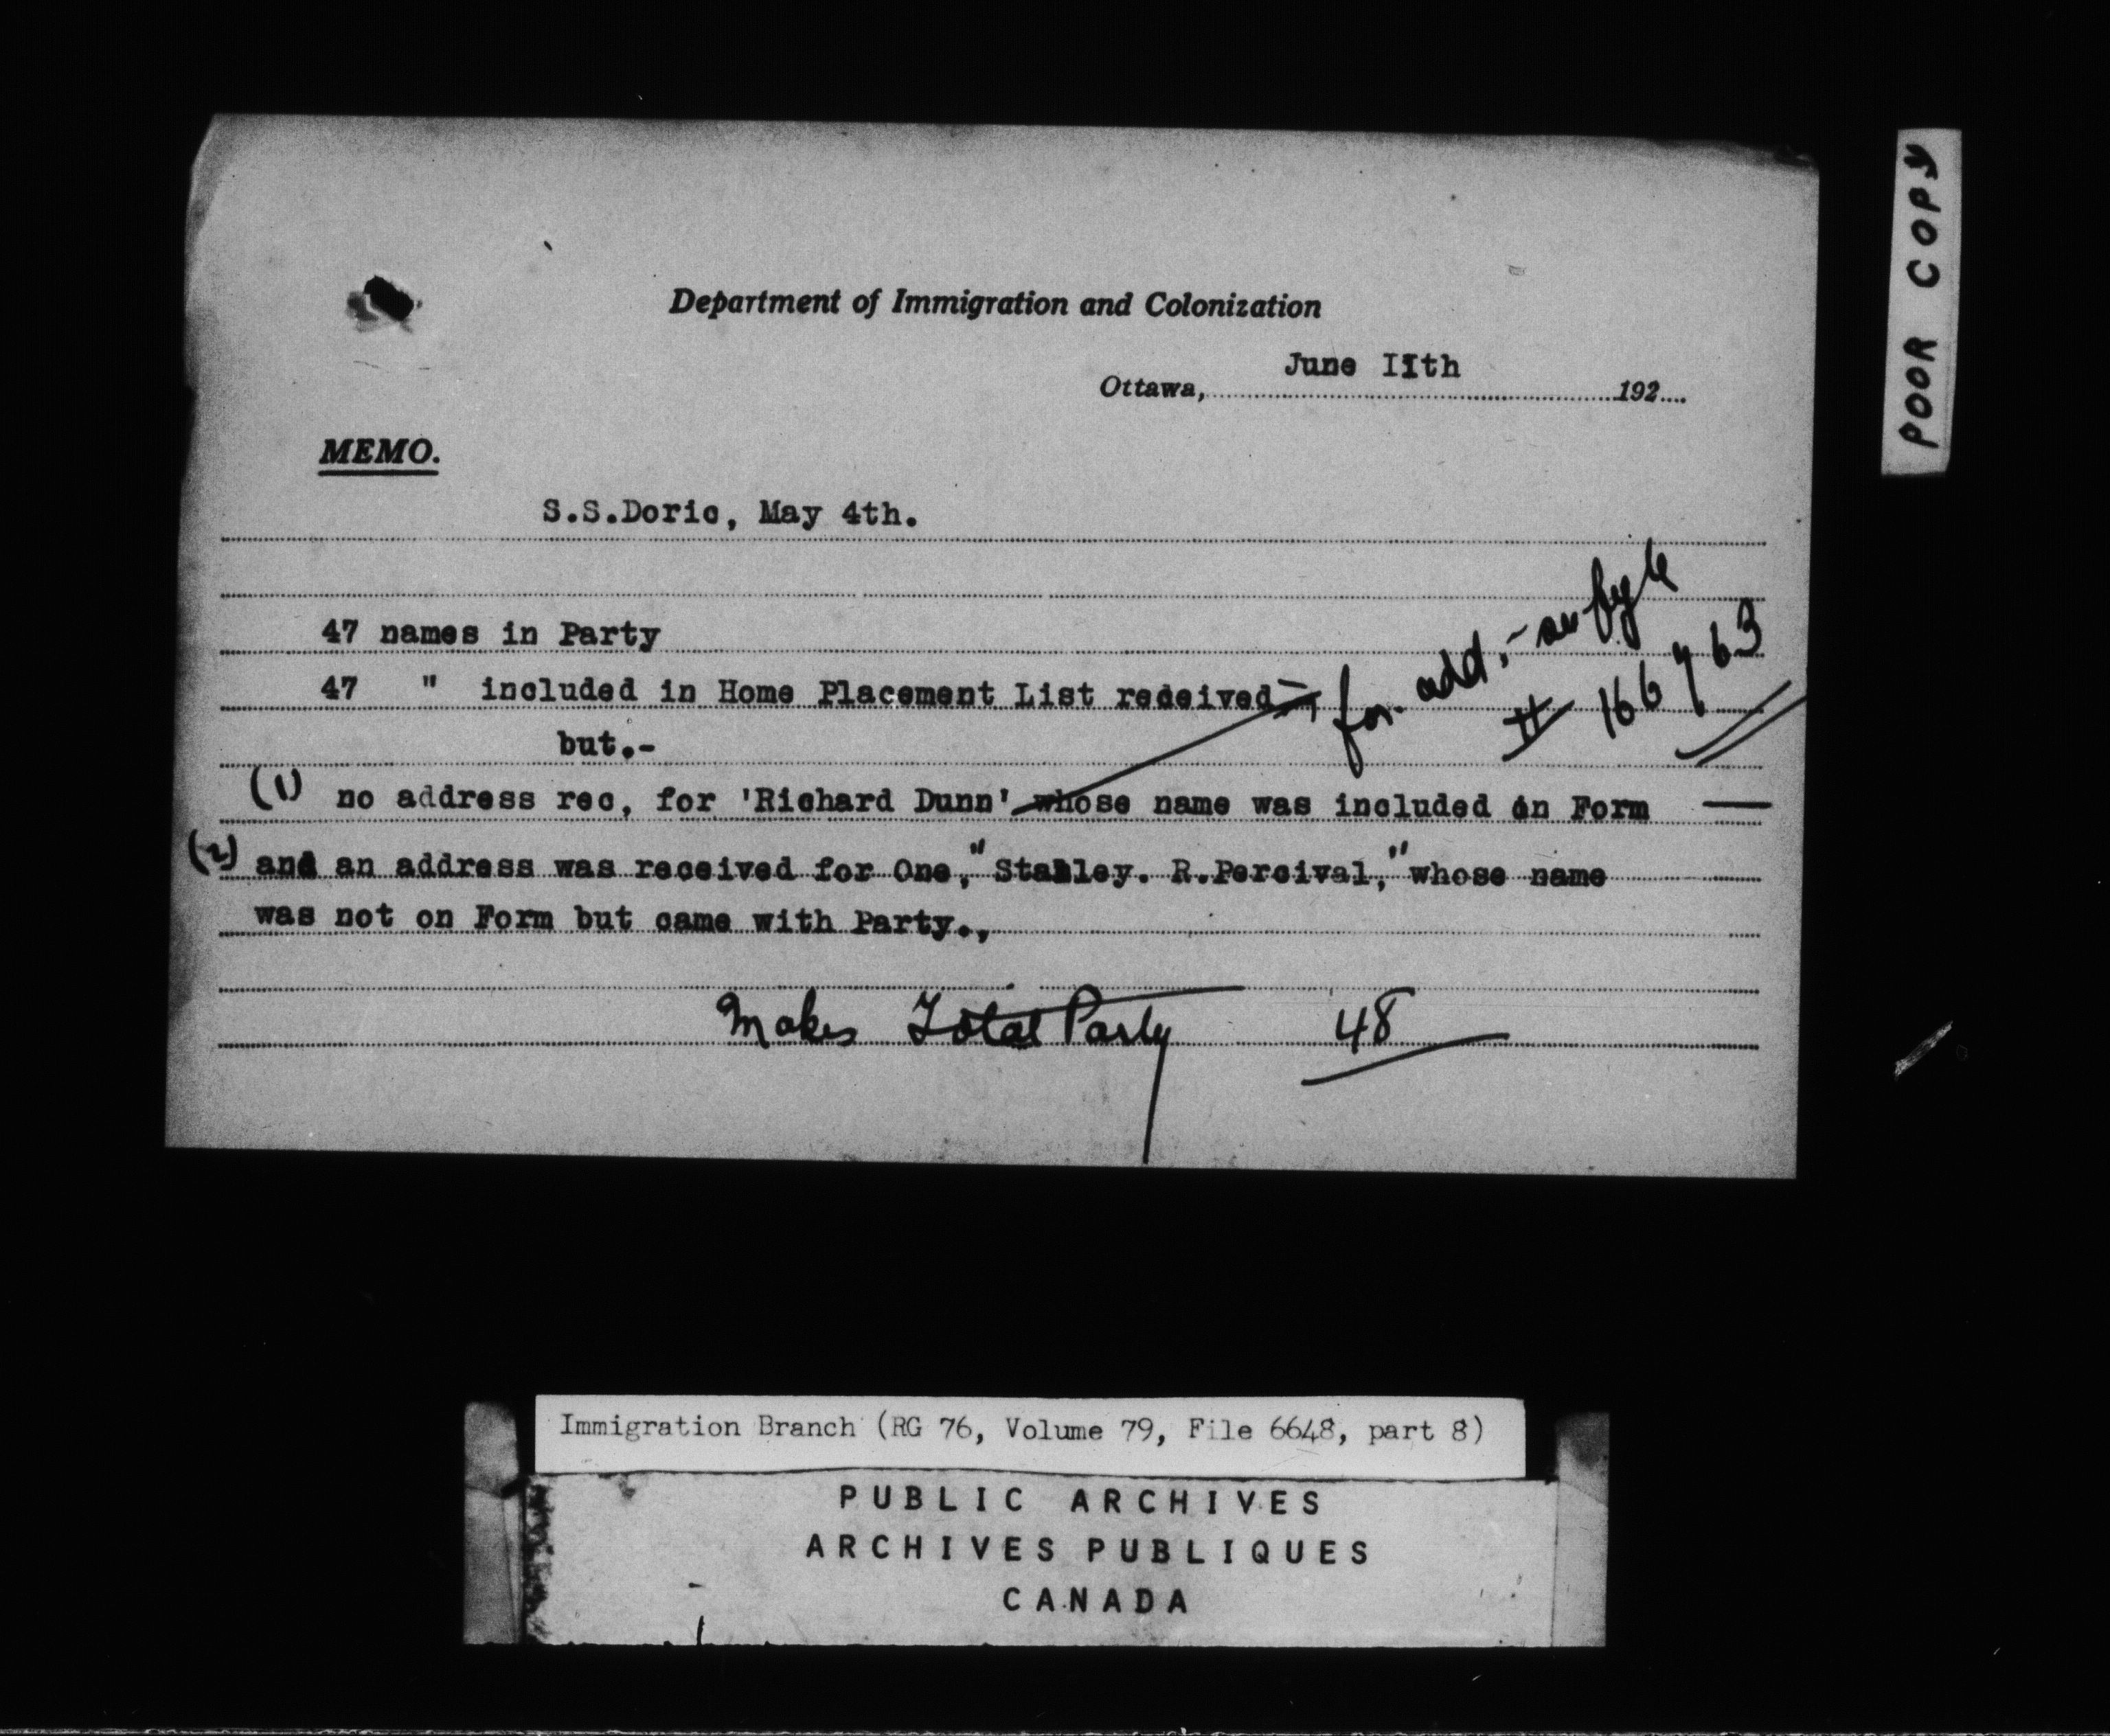 Department of Immigration and Colonization
June IIth
Ottawa, 192
MEMO.
S.S.Doric, May 4th.
47 names in Party
47 " included in Home Placement List received
for add,-
# 166763
but.-
(1) no address rec, for 'Richard Dunn' whose name was included on Form
(2) and an address was received for One, "Stanley. R.Percival," whose name
was not on Form but came with Party.,
Makes Total Party 48
POOR COPY
Immigration Branch (RG 76, Volume 79, File 6648, part 8)
PUBLIC ARCHIVES
ARCHIVES PUBLIQUES
CANADA